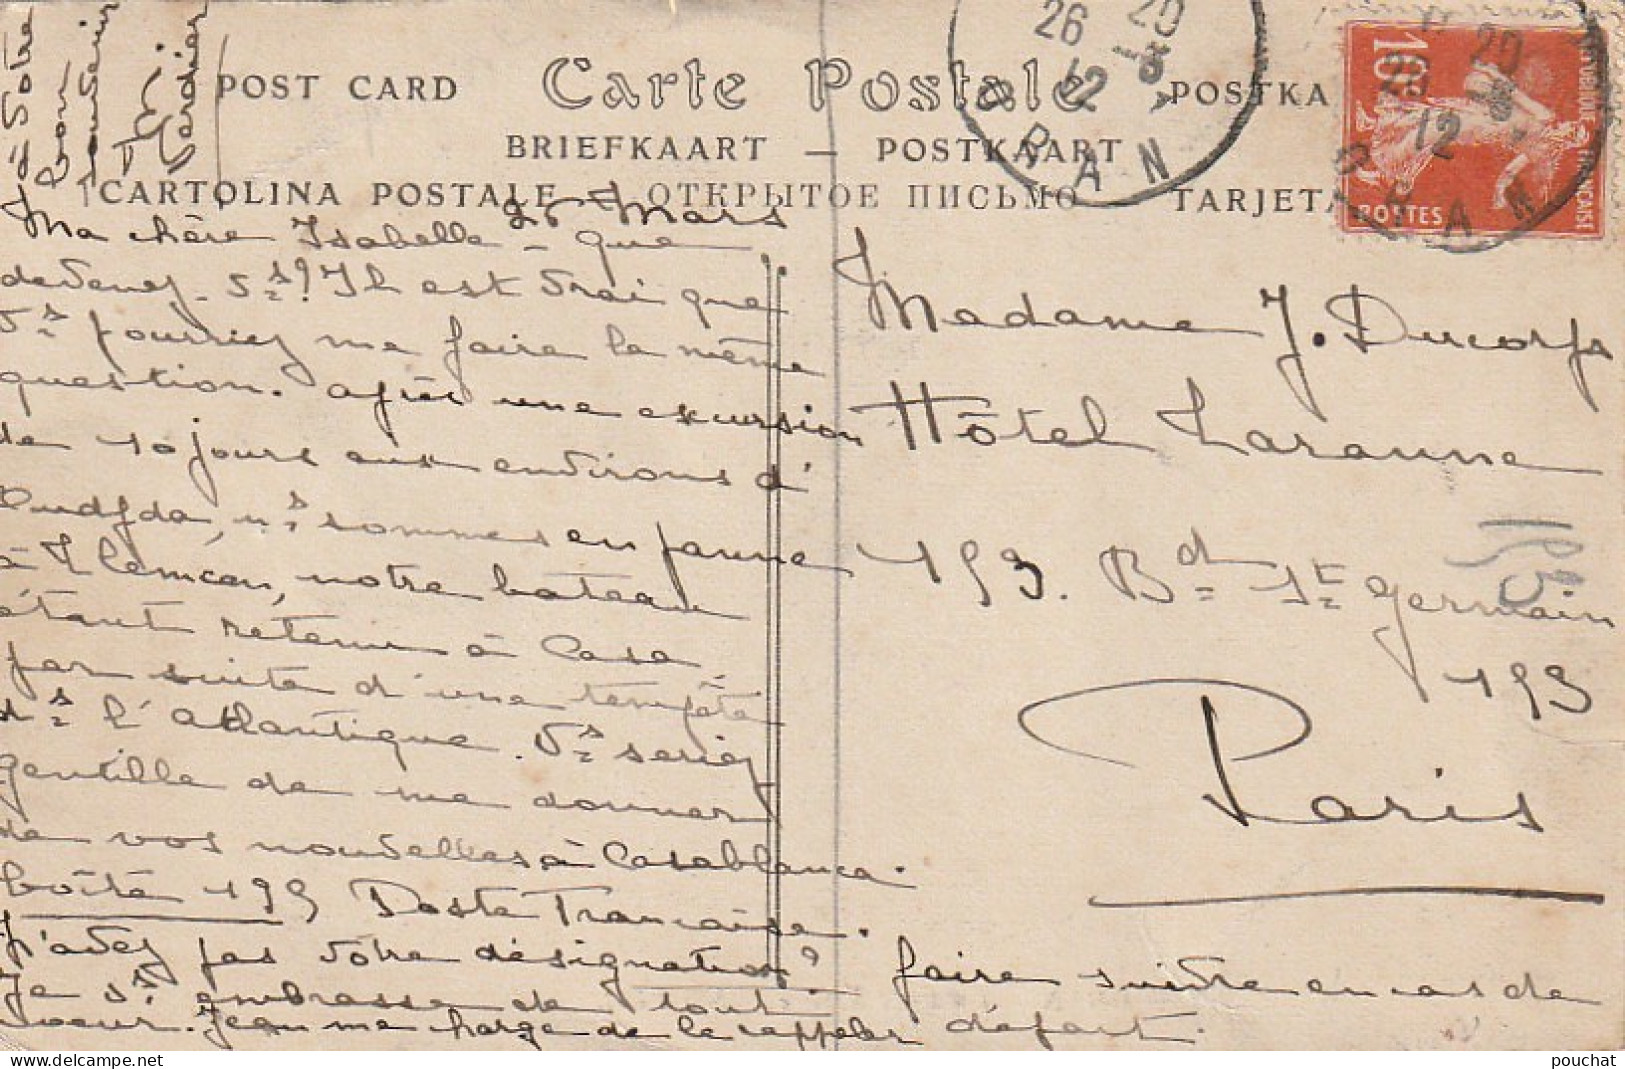 POST CARD Carte Postale POSTKA
BRIEFKAART — POSTKAART
CARTOLINA POSTALE - ОТКРЫТОЕ ПИСЬМО TARJETA
26 20
-3
12
ORAN
10
RÉPUBLIQUE FRANÇAISE
POSTES
25 20
12
ORAN
26 Mars
Ma chère Isabelle - que
devenez-vs? Il est vrai que
vs pourriez me faire la même
question. Après une excursion
de 10 jours aux environs d'
Oudjda, ns sommes en panne
à Tlemcen, notre bateau
étant retenu à Casa,
par suite d'une tempête
ds l'Atlantique. Vs seriez
gentille de me donner
de vos nouvelles à Casablanca.
boîte 195 Poste Française.
N'avez pas votre désignation?
Je vs embrasse de tout
coeur. Jean me charge de le rappeler
à votre
bon
souvenir
Verdier
Madame J. Ducorps
Hôtel Taranne
153. Bd St Germain
153
Paris
faire suivre en cas de
départ.
pouchat